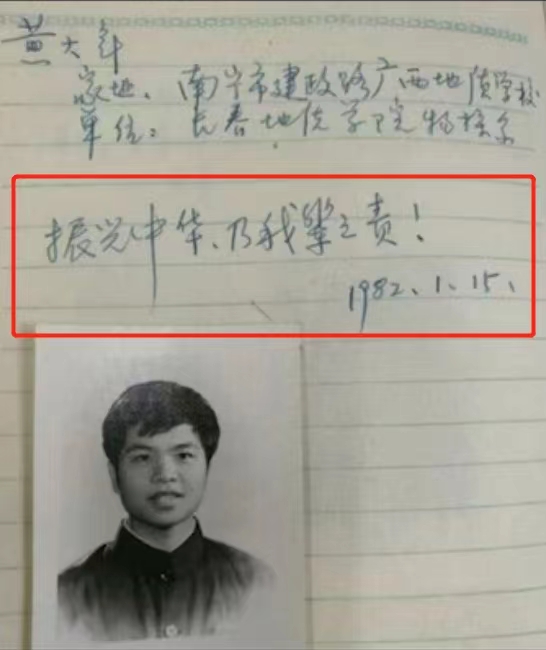 黄大年
家址：南宁市建政路广西地质学校
单位：长春地质学院物探系
振兴中华、乃我辈之责！
1982.1.15.